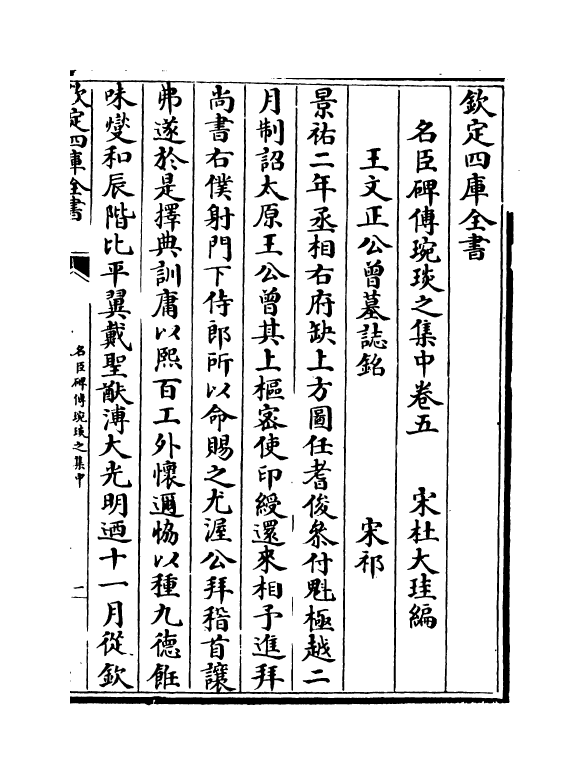 欽定四庫全書
名臣碑傳琬琰之集中卷五　　宋杜大珪編
王文正公曾墓誌銘　　宋祁
景祐二年丞相右府缺上方圖任耆俊叅付魁極越二
月制詔太原王公曾其上樞密使印綬還來相予進拜
尚書右僕射門下侍郎所以命賜之尤渥公拜稽首讓
弗遂於是擇典訓庸以熙百工外懷邇恊以種九德飪
味燮和辰階比平翼戴聖猷溥大光明迺十一月從欽
欽定四庫全書
名臣碑傳琬琰之集中